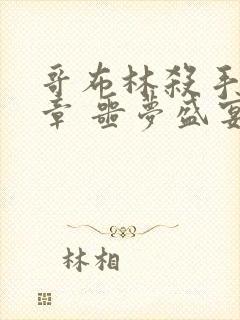 哥布林殺手
章 噩夢盛宴
林相